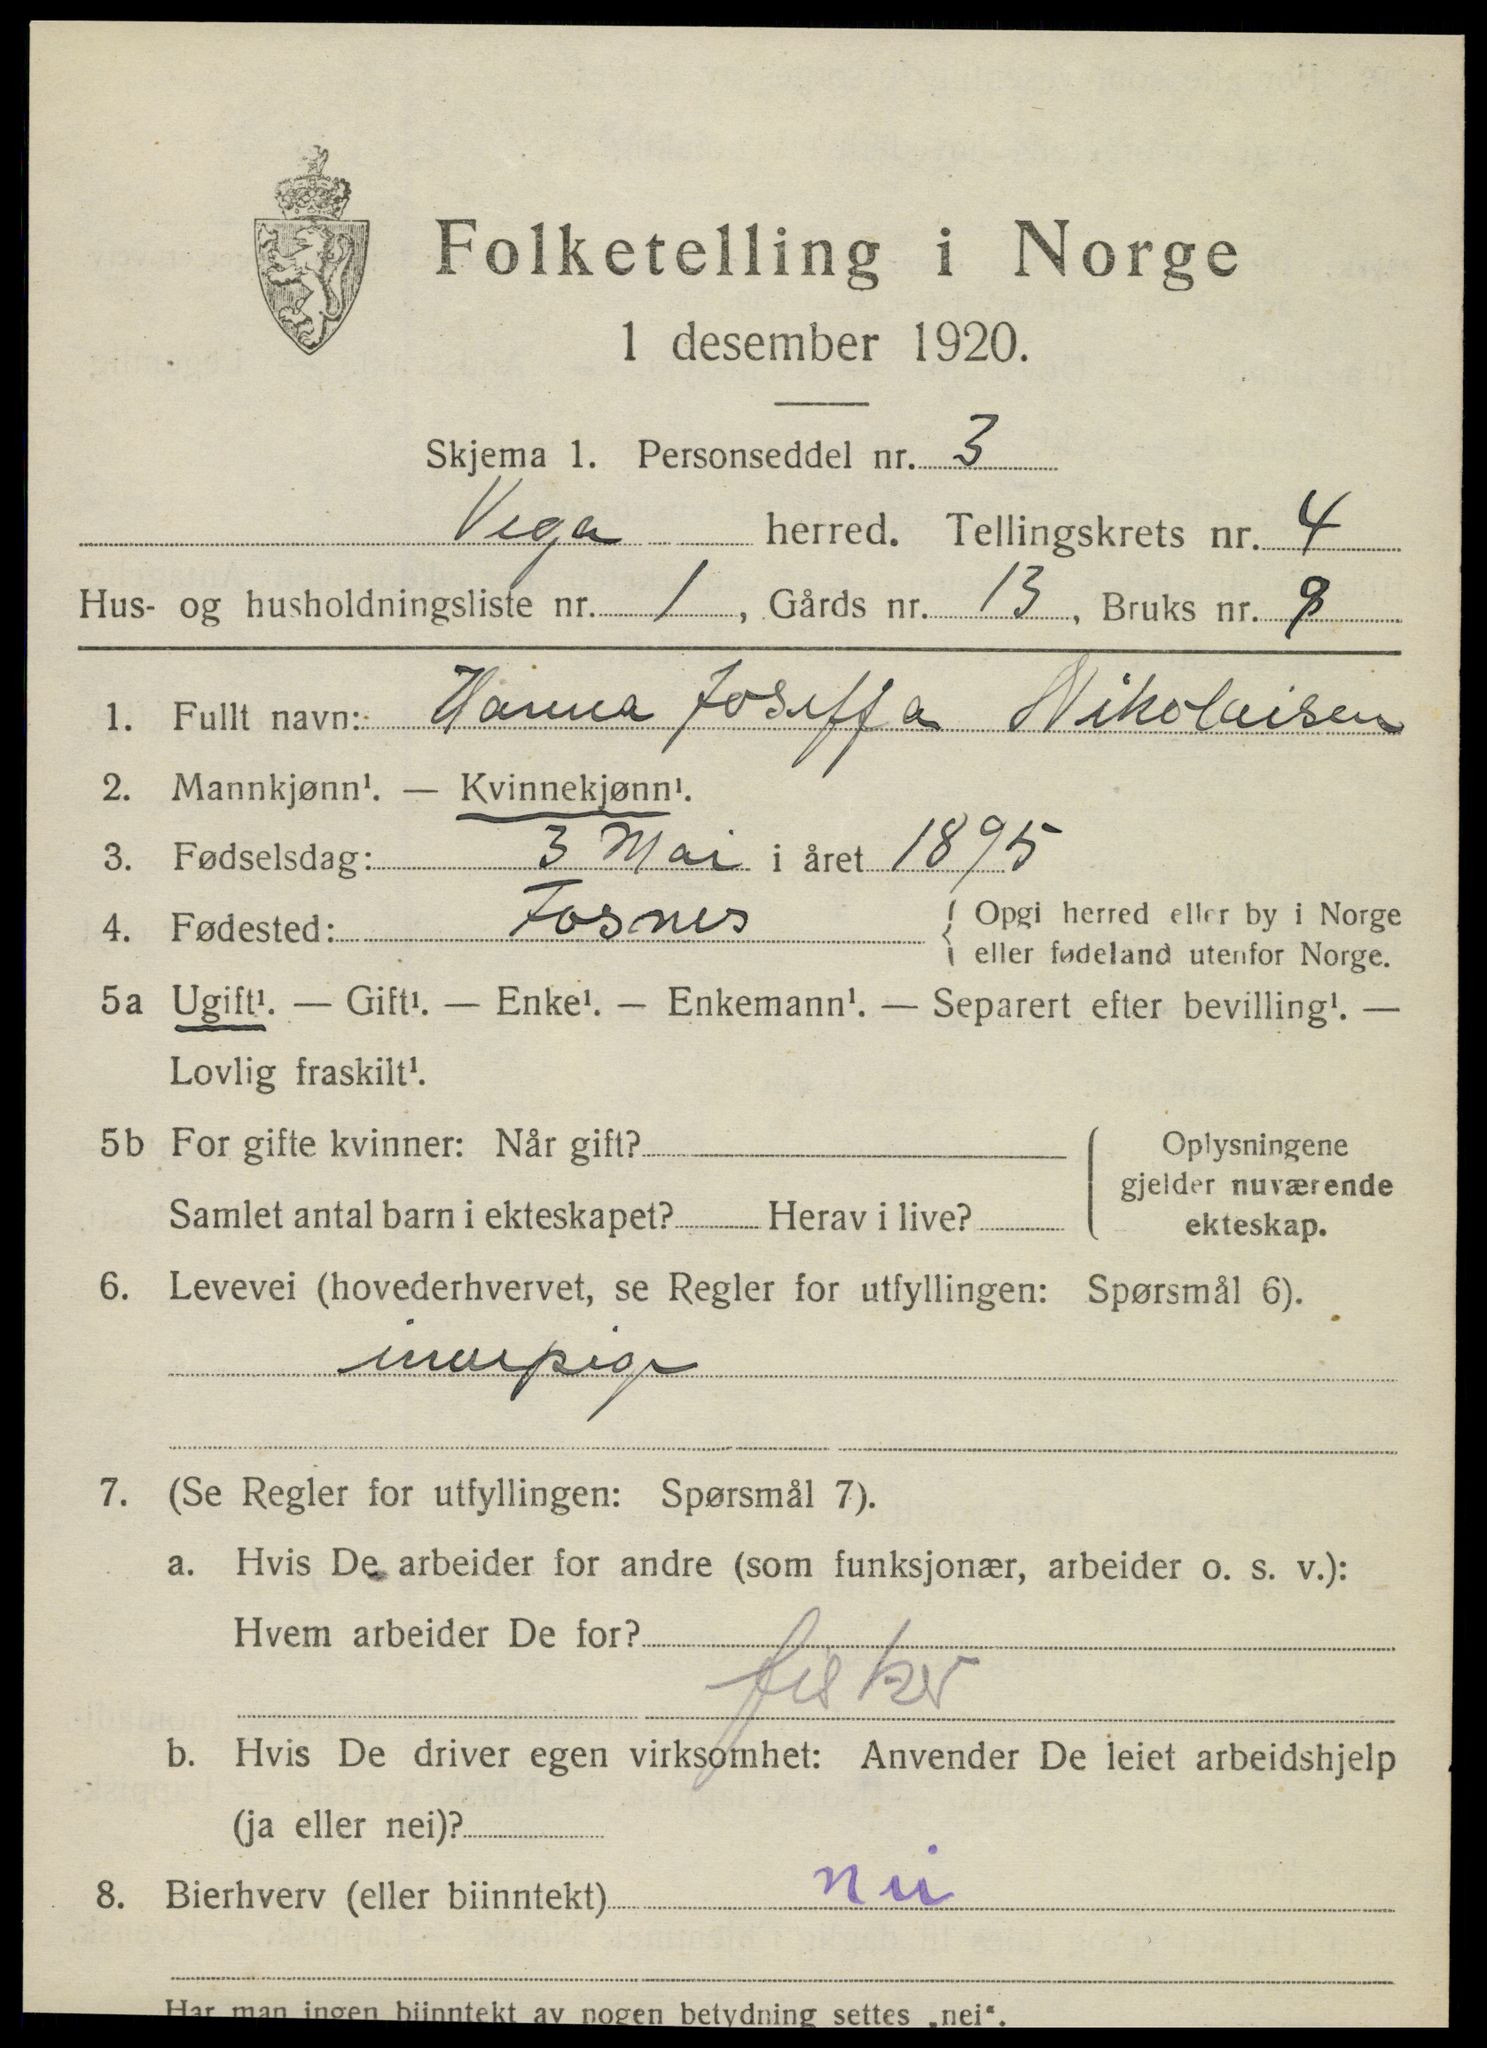 Folketelling i Norge
1 desember 1920.
Skjema 1. Personseddel nr. 3
Vega herred. Tellingskrets nr. 4
Hus- og husholdningsliste nr. 1, Gårds nr. 13, Bruks nr.
1. Fullt navn: Hanna Joseffa Nikolaisen
2. Mannkjønn¹. — Kvinnekjønn¹.
3. Fødselsdag: 3 Mai i året 1895
4. Fødested: Fosnes { Opgi herred eller by i Norge
eller fødeland utenfor Norge.
5a Ugift¹. — Gift¹. — Enke¹. — Enkemann¹. — Separert efter bevilling¹. —
Lovlig fraskilt¹.
5b For gifte kvinner: Når gift? { Oplysningene
gjelder nuværende
Samlet antal barn i ekteskapet? Herav i live?
ekteskap.
6. Levevei (hovederhvervet, se Regler for utfyllingen: Spørsmål 6).
7. (Se Regler for utfyllingen: Spørsmål 7).
a. Hvis De arbeider for andre (som funksjonær, arbeider o. s. v.):
Hvem arbeider De for?
fisker
b. Hvis De driver egen virksomhet: Anvender De leiet arbeidshjelp
(ja eller nei)?
8. Bierhverv (eller biinntekt) nei
Har man ingen biinntekt av nogen betydning settes „nei“.